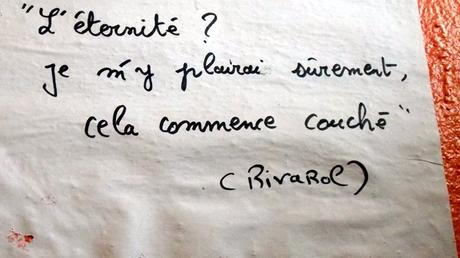 "L'éternité ?
je m'y plairai sûrement,
cela commence couché"
(RivaRol)